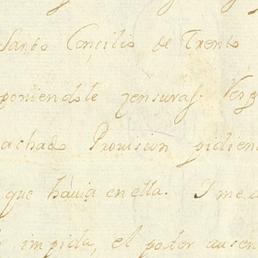 Santo Concilio de Trento
poniendole zensuras. Verg
achado Provision pidien
que havia en ella. Imea
impida, el poder ausen